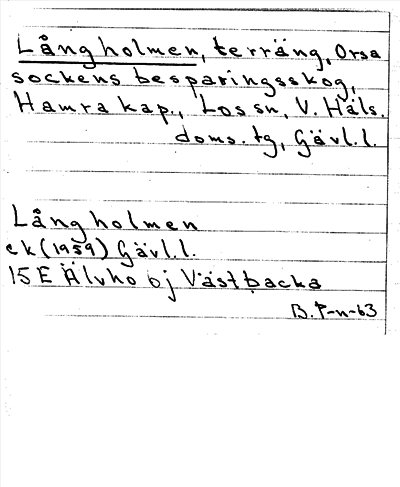 Långholmen, terräng, Orsa
sockens besparingsskog,
Hamra kap., Los sn, V. Häls.
doms. tg, Gävl. l.
Långholmen
ek (1959) Gävl. l.
15 E Älvho öj Västbacka
B. P-n-63